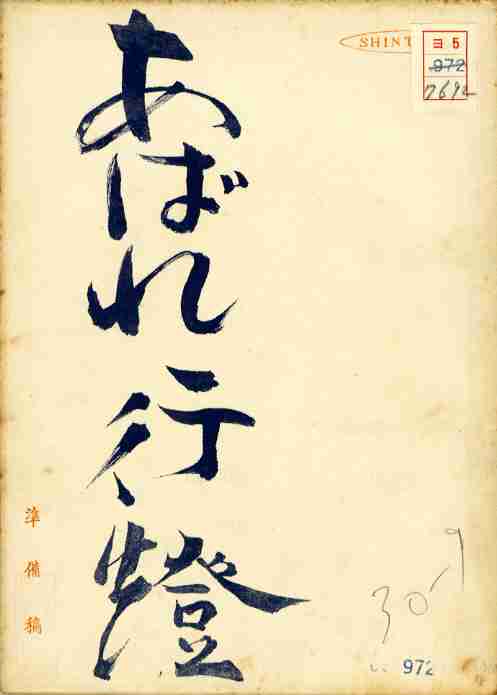 SHINT
ヨ5
972
7692
あばれ行燈
準備稿
30.9
972